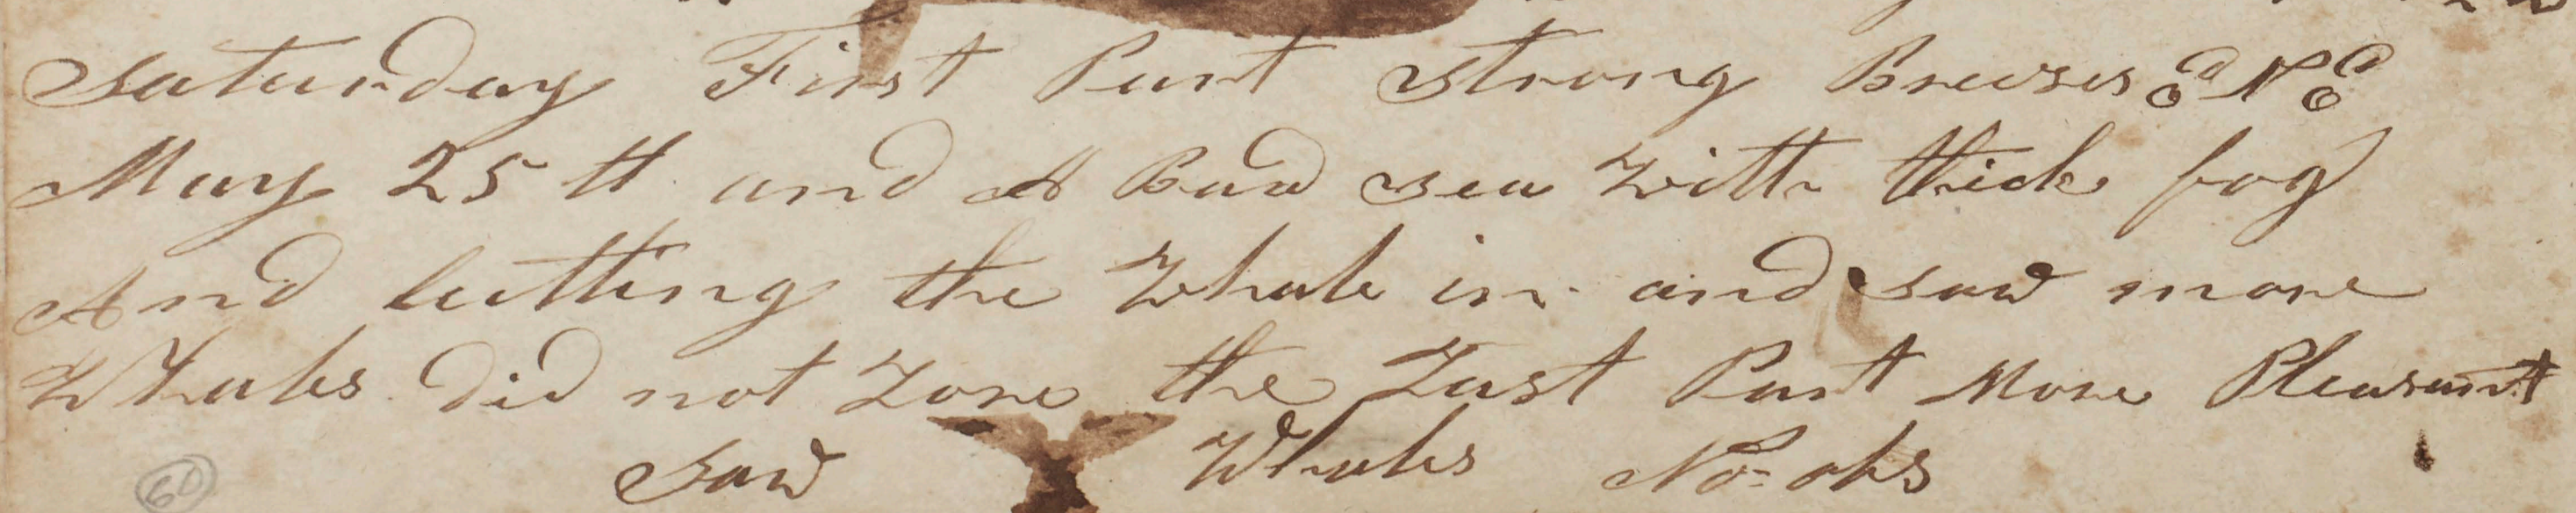 Saturday First Part Strong Breeses ENE
May 25 th and A Bad sea with thick fog
And cutting the Whale in and saw more
Whales did not Lore the Last Part More Pleasant
Saw Whales No obs
60